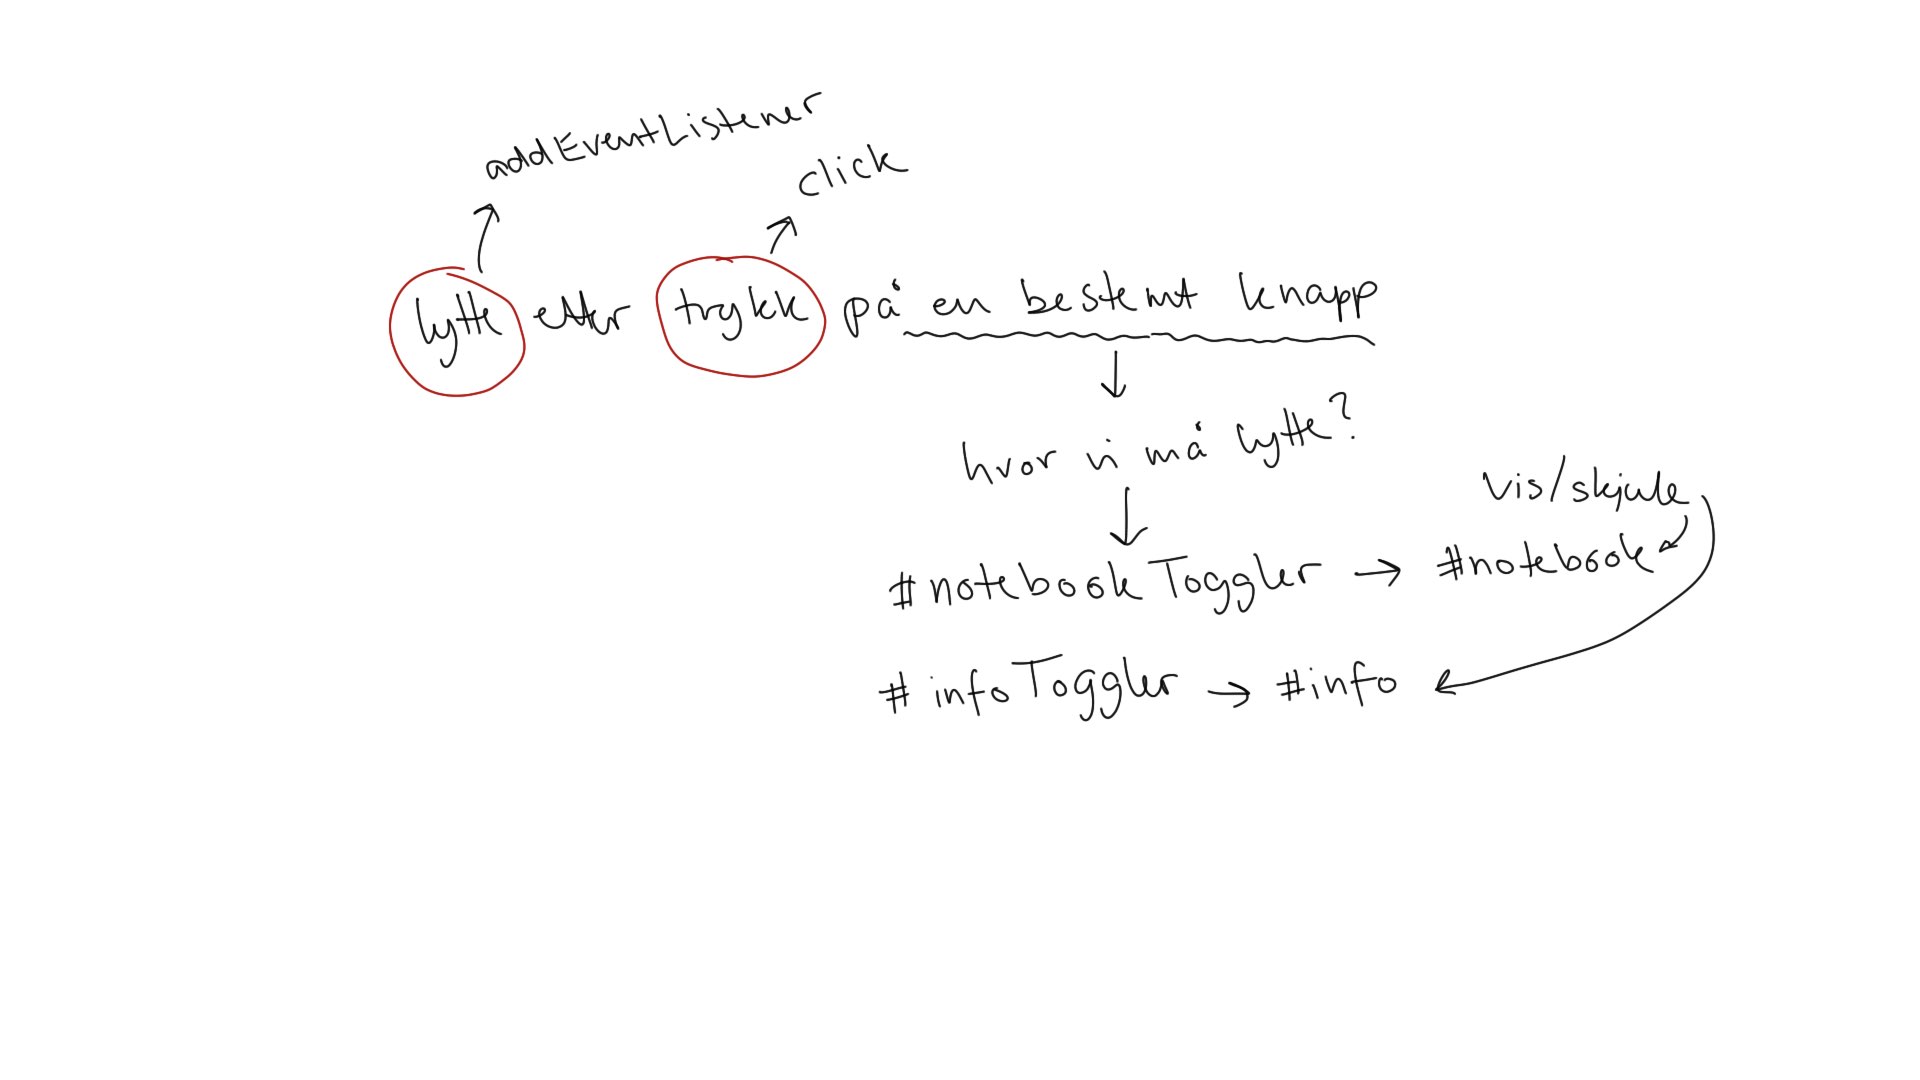 addEventListener
click
lytte etter trykk på en bestemt knapp
hvor vi må lytte?
vis/skjule
#notebookToggler → #notebook
#infoToggler → #info